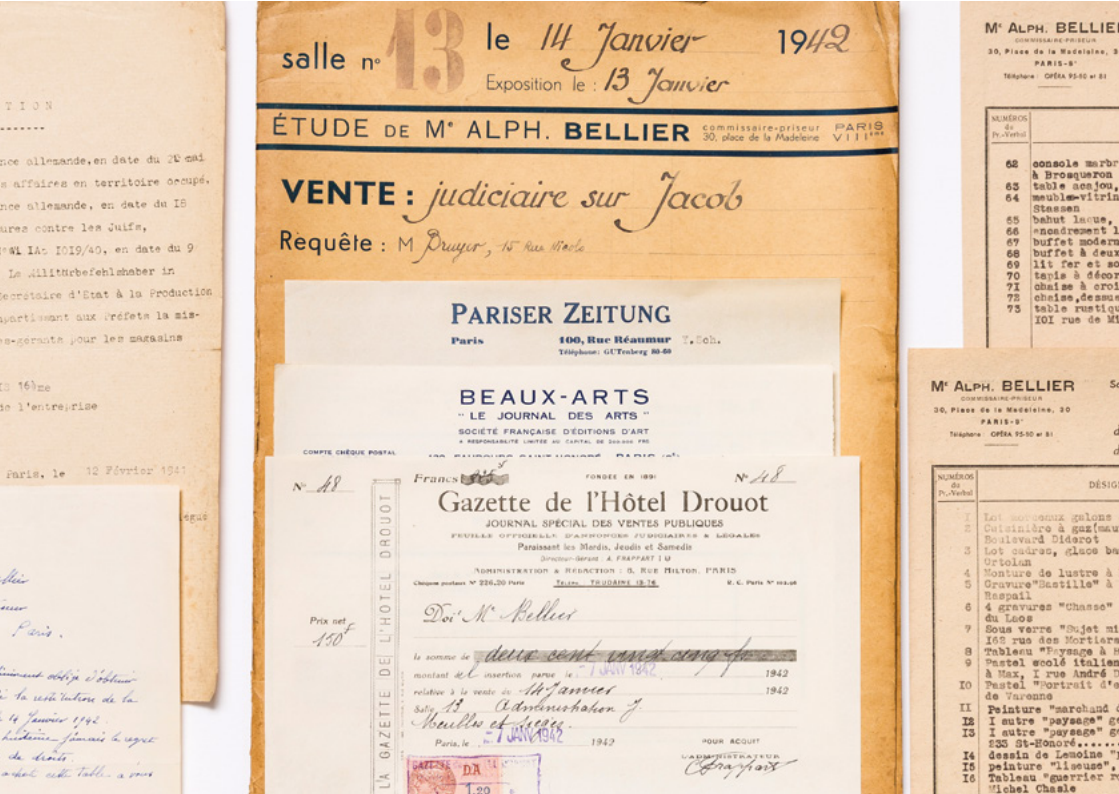 TION
nce allemande, en date du 20 mai
s affaires en territoire occupé.
nce allemande, en date du 18
ures contre les Juifs,
IAt 1019/40, en date du 9
Le Militärbefehlshaber in
ecrétaire d'Etat à la Production
partissant aux Préfets la mis-
s-gérants pour les magasins
IS 16ème
de l'entreprise
Paris, le 12 Février 1941
Paris.
obligé d'obtenir
la restitution de la
14 Janvier 1942.
jamais le
de droits.
cette table a vous
salle n° 13 le 14 Janvier 1942
Exposition le : 13 Janvier
ÉTUDE DE Me ALPH. BELLIER commissaire-priseur PARIS
30, place de la Madeleine VIIIème
VENTE : judiciaire sur Jacob
Requête : M Bruyer, 15 Rue Nicolo
PARISER ZEITUNG
Paris 100, Rue Réaumur T.Sch.
Téléphone: GUTenberg 80-60
BEAUX-ARTS
" LE JOURNAL DES ARTS "
SOCIÉTÉ FRANÇAISE D'ÉDITIONS D'ART
A RESPONSABILITÉ LIMITÉE AU CAPITAL DE FRS
COMPTE CHÈQUE POSTAL
FAUBOURG SAINT-HONORÉ PARIS
N° 48 Francs FONDÉE EN 1891 N° 48
Gazette de l'Hôtel Drouot
JOURNAL SPÉCIAL DES VENTES PUBLIQUES
FEUILLE OFFICIELLE D'ANNONCES JUDICIAIRES & LÉGALES
Paraissant les Mardis, Jeudis et Samedis
Directeur-Gérant : A. FRAPPART
ADMINISTRATION & RÉDACTION : 8, RUE MILTON, PARIS
Chèques postaux N° 226.20 Paris TÉLÉPH. TRUDAINE 15.76 R. C. Paris N°
LA GAZETTE DE L'HOTEL DROUOT
Prix net
150 F
Doit Me Bellier
la somme de deux cent vingt cinq fr
montant de insertion parue le - 7 JANV 1942 1942
relative à la vente du 14 Janvier 1942
Salle 13 Administration J.
Meubles et sièges.
Paris, le - 7 JANV 1942 1942 POUR ACQUIT
L'ADMINISTRATEUR
Frappart
GAZETTE
DA
1.20
Me ALPH. BELLIER
COMMISSAIRE-PRISEUR
30, Place de la Madeleine, 3
PARIS-8e
Téléphone : OPÉRA 95-50 et 51
NUMÉROS
du
Pr.-Verbal
62 console marbr
à Brosqueron
63 table acajou,
64 meuble-vitrin
Stassen
65 bahut laque,
66 encadrement l
67 buffet modern
68 buffet à deux
69 lit fer et so
70 tapis à décor
71 chaise à croi
72 chaise, dessu
73 table rustiqu
101 rue de Mi
Me ALPH. BELLIER
COMMISSAIRE-PRISEUR
30, Place de la Madeleine, 30
PARIS-8e
Téléphone : OPÉRA 95-50 et 51
NUMÉROS
du
Pr.-Verbal
DÉSIG
1 Lot morceaux galons
2 Cuisinière à gaz(mau
Boulevard Diderot
3 Lot cadres, glace ba
Ortolan
4 Monture de lustre à
5 Gravure"Bastille" à
Raspail
6 4 gravures "Chasse"
du Laos
7 Sous verre "Sujet mi
162 rue des Mortiers
8 Tableau "Paysage à H
9 Pastel école italien
à Max, I rue André D
10 Pastel "Portrait d'e
de Varenne
11 Peinture "marchand d
12 I autre "paysage" ge
13 I autre "paysage" ge
233 St-Honoré......
14 dessin de Lemoine "p
15 peinture "liseuse",
16 Tableau "guerrier r
Michel Chasle